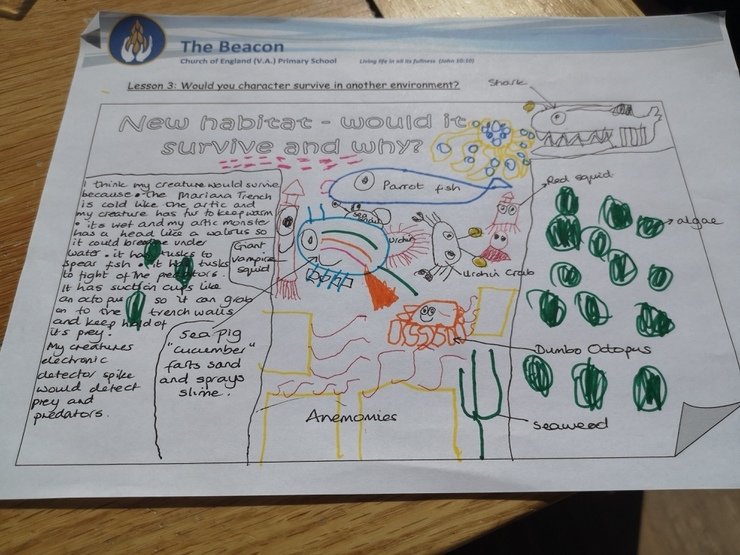 The Beacon
Church of England (V.A.) Primary School
Living life in all its fullness (John 10:10)
Lesson 3: Would you character survive in another environment?
New habitat - would it
survive and why?
Shark
I think my creature would survive
because • the Mariana Trench
is cold like the artic and
my creature has fur to keep warm
• its wet and my artic monster
has a head like a walrus so
it could breathe under
water • it has tusks to
spear fish • it tusks
to fight of the predators.
It has suction cups like
an octopus so it can grab
on to the trench walls
and keep hold of
it's prey.
My creatures
electronic
detector spike
would detect
prey and
predators.
Giant
vampire
squid
Sea pig
"cucumber"
farts sand
and sprays
slime.
Parrot fish
squid
urchin
Urchin Crab
Red squid
algae
Dumbo Octopus
Seaweed
Anemomies